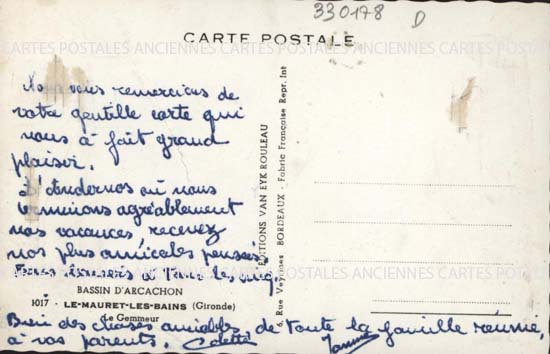 330178 D
CARTE POSTALE
CARTES POSTALES ANCIENNES CARTES POSTALES ANCIENNES CARTES POSTALES
Nous vous remercions de
votre gentille carte qui
nous a fait grand
plaisir.
D'Andernos où nous
terminons agréablement
nos vacances recevez
nos plus amicales pensées.
à tous les cinq.
BASSIN D'ARCACHON
1017 - LE-MAURET-LES-BAINS (Gironde)
Le Gemmeur
Bien des choses aimables, de toute la famille réunie,
à vos parents. Colette
EDITIONS VAN EYK ROULEAU
6, Rue Veyrines BORDEAUX - Fabric Française Repr. Int